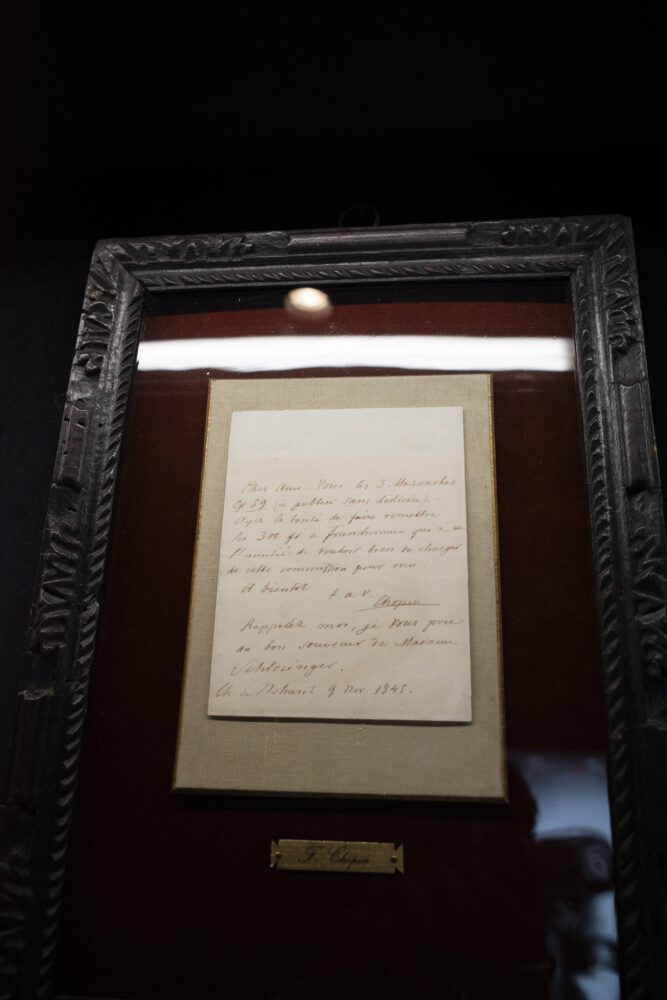 Cher Ami. Voici les 3 Mazourkas
Op 59 (à publier sans dédicace). –
Ayez la bonté de faire remettre
les 300 fr à Franchomme qui a eu
l'amitié de vouloir bien se charger
de cette commission pour moi.
A bientôt t. a v.
Chopin
Rappelez moi, je vous prie
au bon souvenir de Madame
Schlesinger.
Ch de Nohant 9 Nov. 1845.
F. Chopin